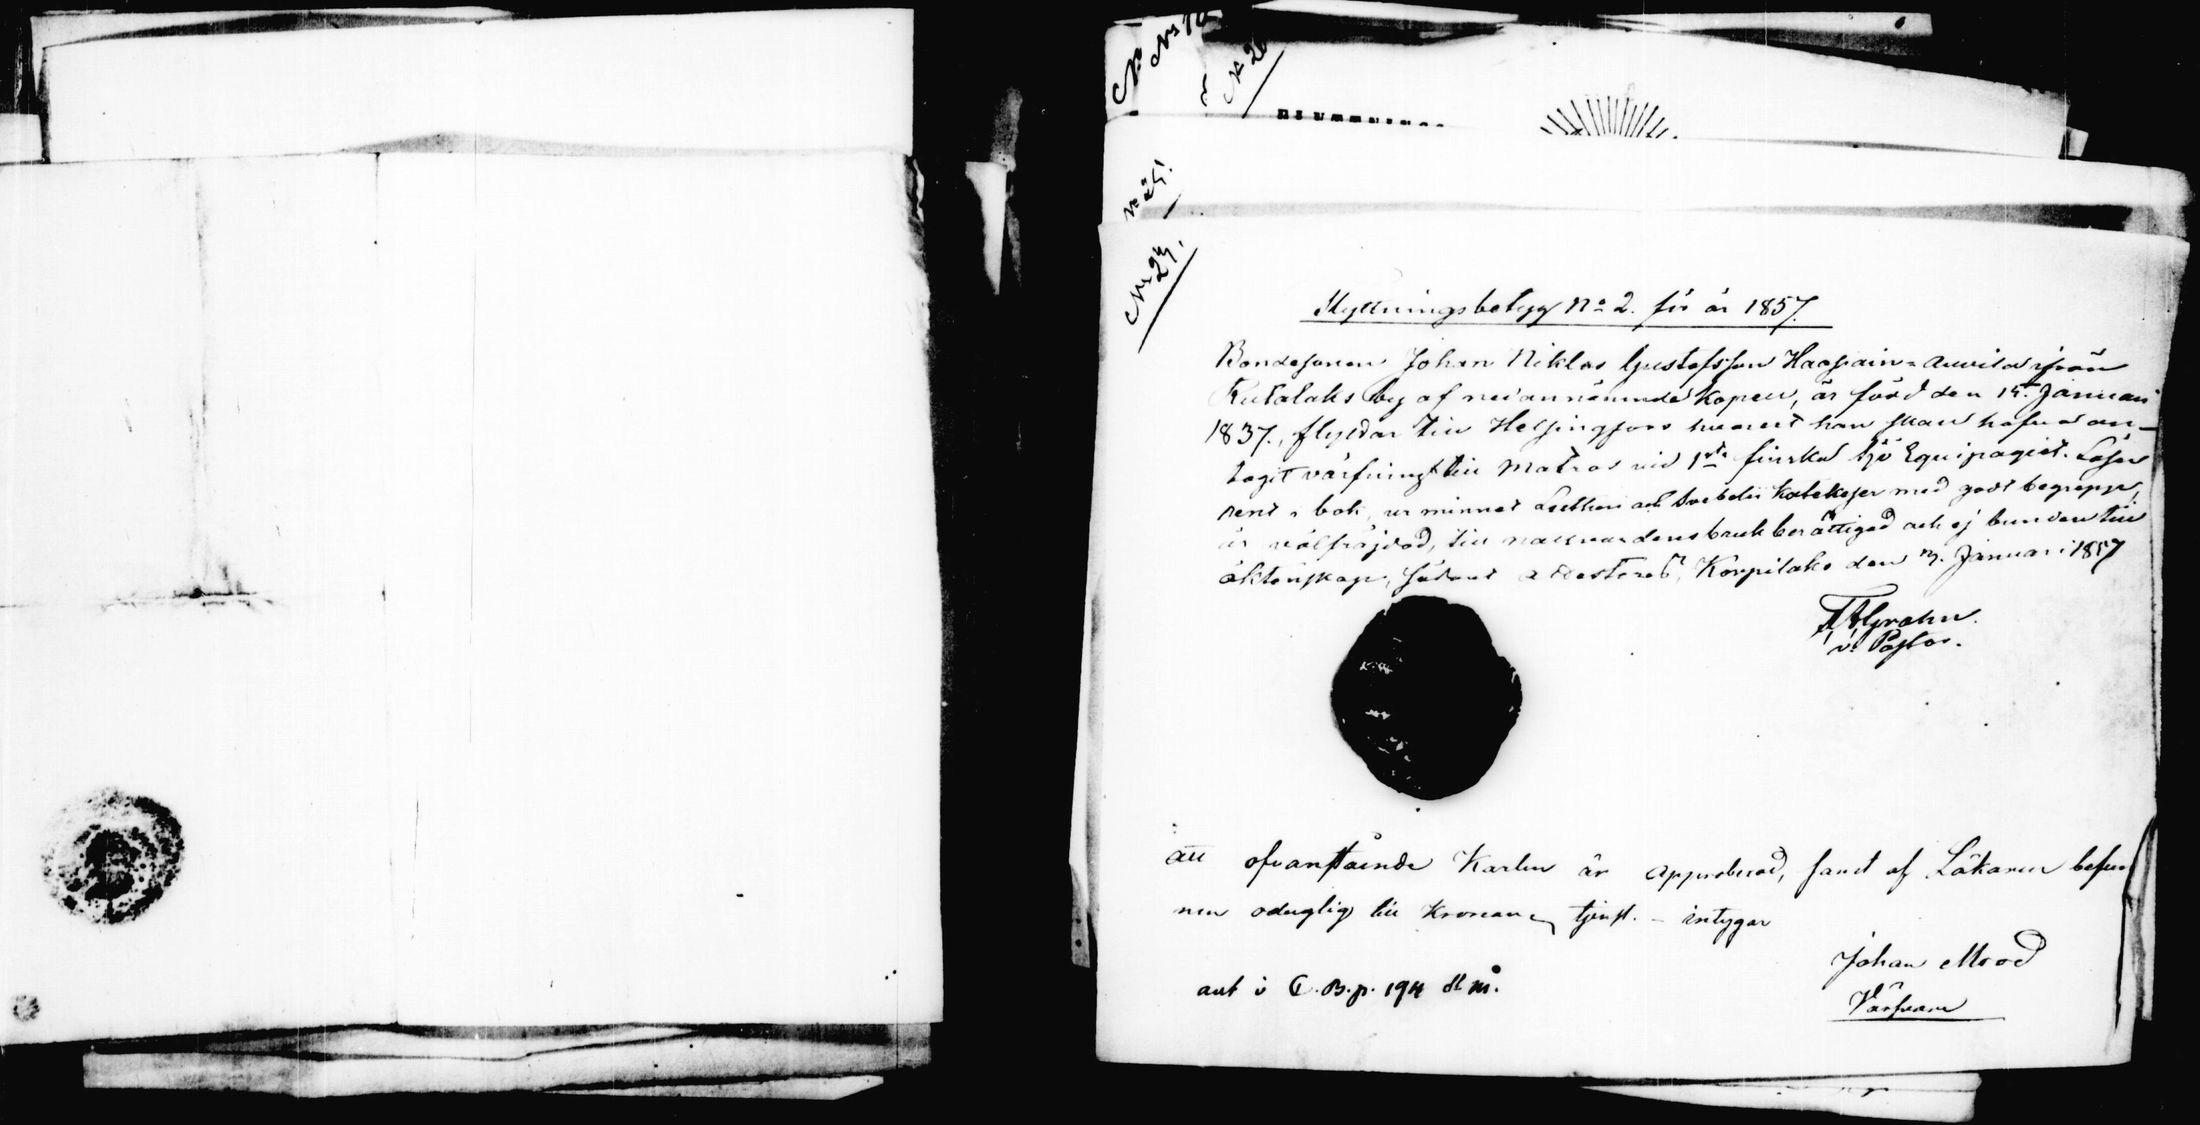 No 24.
Flyttningsbetyg No 2. för år 1857.
Bondesonen Johan Niklas Gustafsson Haapain- ifrån
Rutalaks by af nedannämnde Kapell, är född den 15 Januari
1837., flyttar till Helsingfors hvarest han skall hafva an-
tagit värfning till Matros vid 1sta finska Sjö Equipaget. Läser
rent i bok, ur minnet Lutheri och Svebelii Katekeser med godt begrepp,
är välfräjdad, till nattvardens bruk berättigad och ej bunden till
äktenskap, sådant attesteras, Korpilaks den 3. Januari 1857
Grahn.
v. Pastor.
Att ofvanstående Karlen är approberad, samt af Läkaren befun
nen oduglig till Kronans tjenst. - intygar
Johan Mood
Värfvare
ant i C.B.p. 194